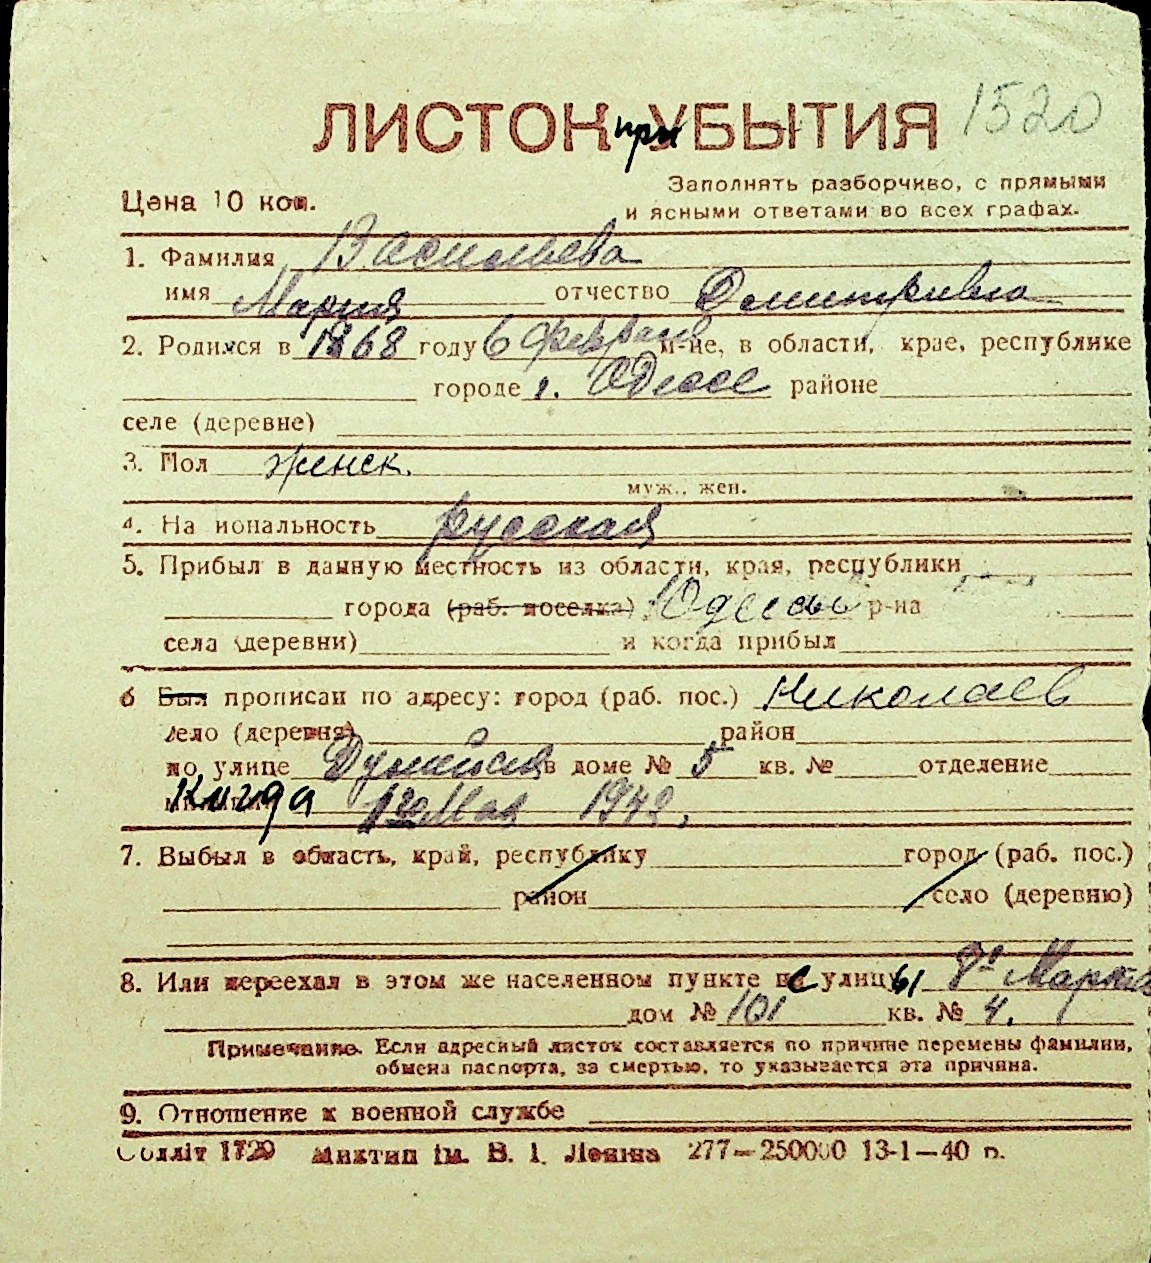 ЛИСТОК приУБЫТИЯ 1520
Цена 10 коп.
Заполнять разборчиво, с прямыми
и ясными ответами во всех графах.
1. Фамилия Васильева
имя Мария отчество Дмитривна
2. Родился в 1868 году 6 февраля м-це, в области, крае, республике
городе г. Одессе районе
селе (деревне)
3. Пол женск.
муж., жен.
4. На иональность русская
5. Прибыл в данную местность из области, края, республики
города (раб. поселка) Одессы р-на
села (деревни) и когда прибыл
6 Был прописан по адресу: город (раб. пос.) Николаев
село (деревня) район
по улице Дунайская в доме № 5 кв. № отделение
Книга 1го Мая 1942.
7. Выбыл в область, край, республику город (раб. пос.)
район село (деревню)
8. Или переехал в этом же населенном пункте с улицы 8го Марта
дом № 101 кв. № 4.
Примечание. Если адресный листок составляется по причине перемены фамилии,
обмена паспорта, за смертью, то указывается эта причина.
9. Отношение к военной службе
Облліт 1729 Миктип ім. В. І. Леніна 277—250000 13-1—40 р.